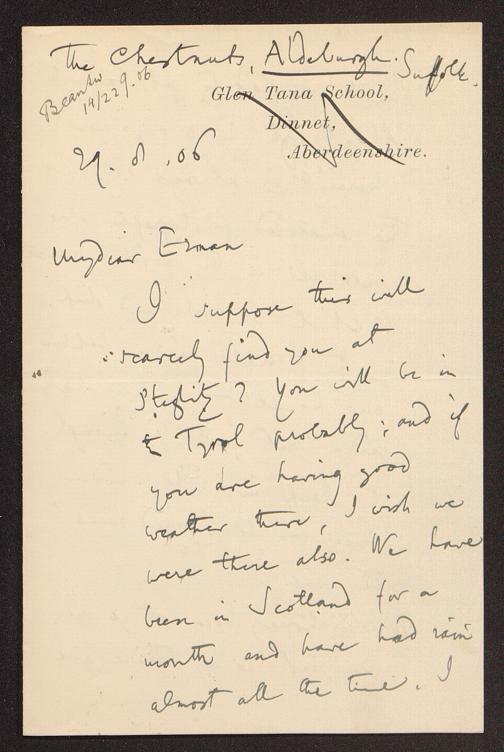 The Chestnuts, Aldeburgh. Suffolk.
Beantw
14/229.06
Glen Tana School,
Dinnet,
Aberdeenshire.
29.8.06
My dear Erman
I suppose this will
scarcely find you at
Steglitz? You will be in
Tyrol probably; and if
you are having good
weather there, I wish we
were there also. We have
been in Scotland for a
month and have had rain
almost all the time. I